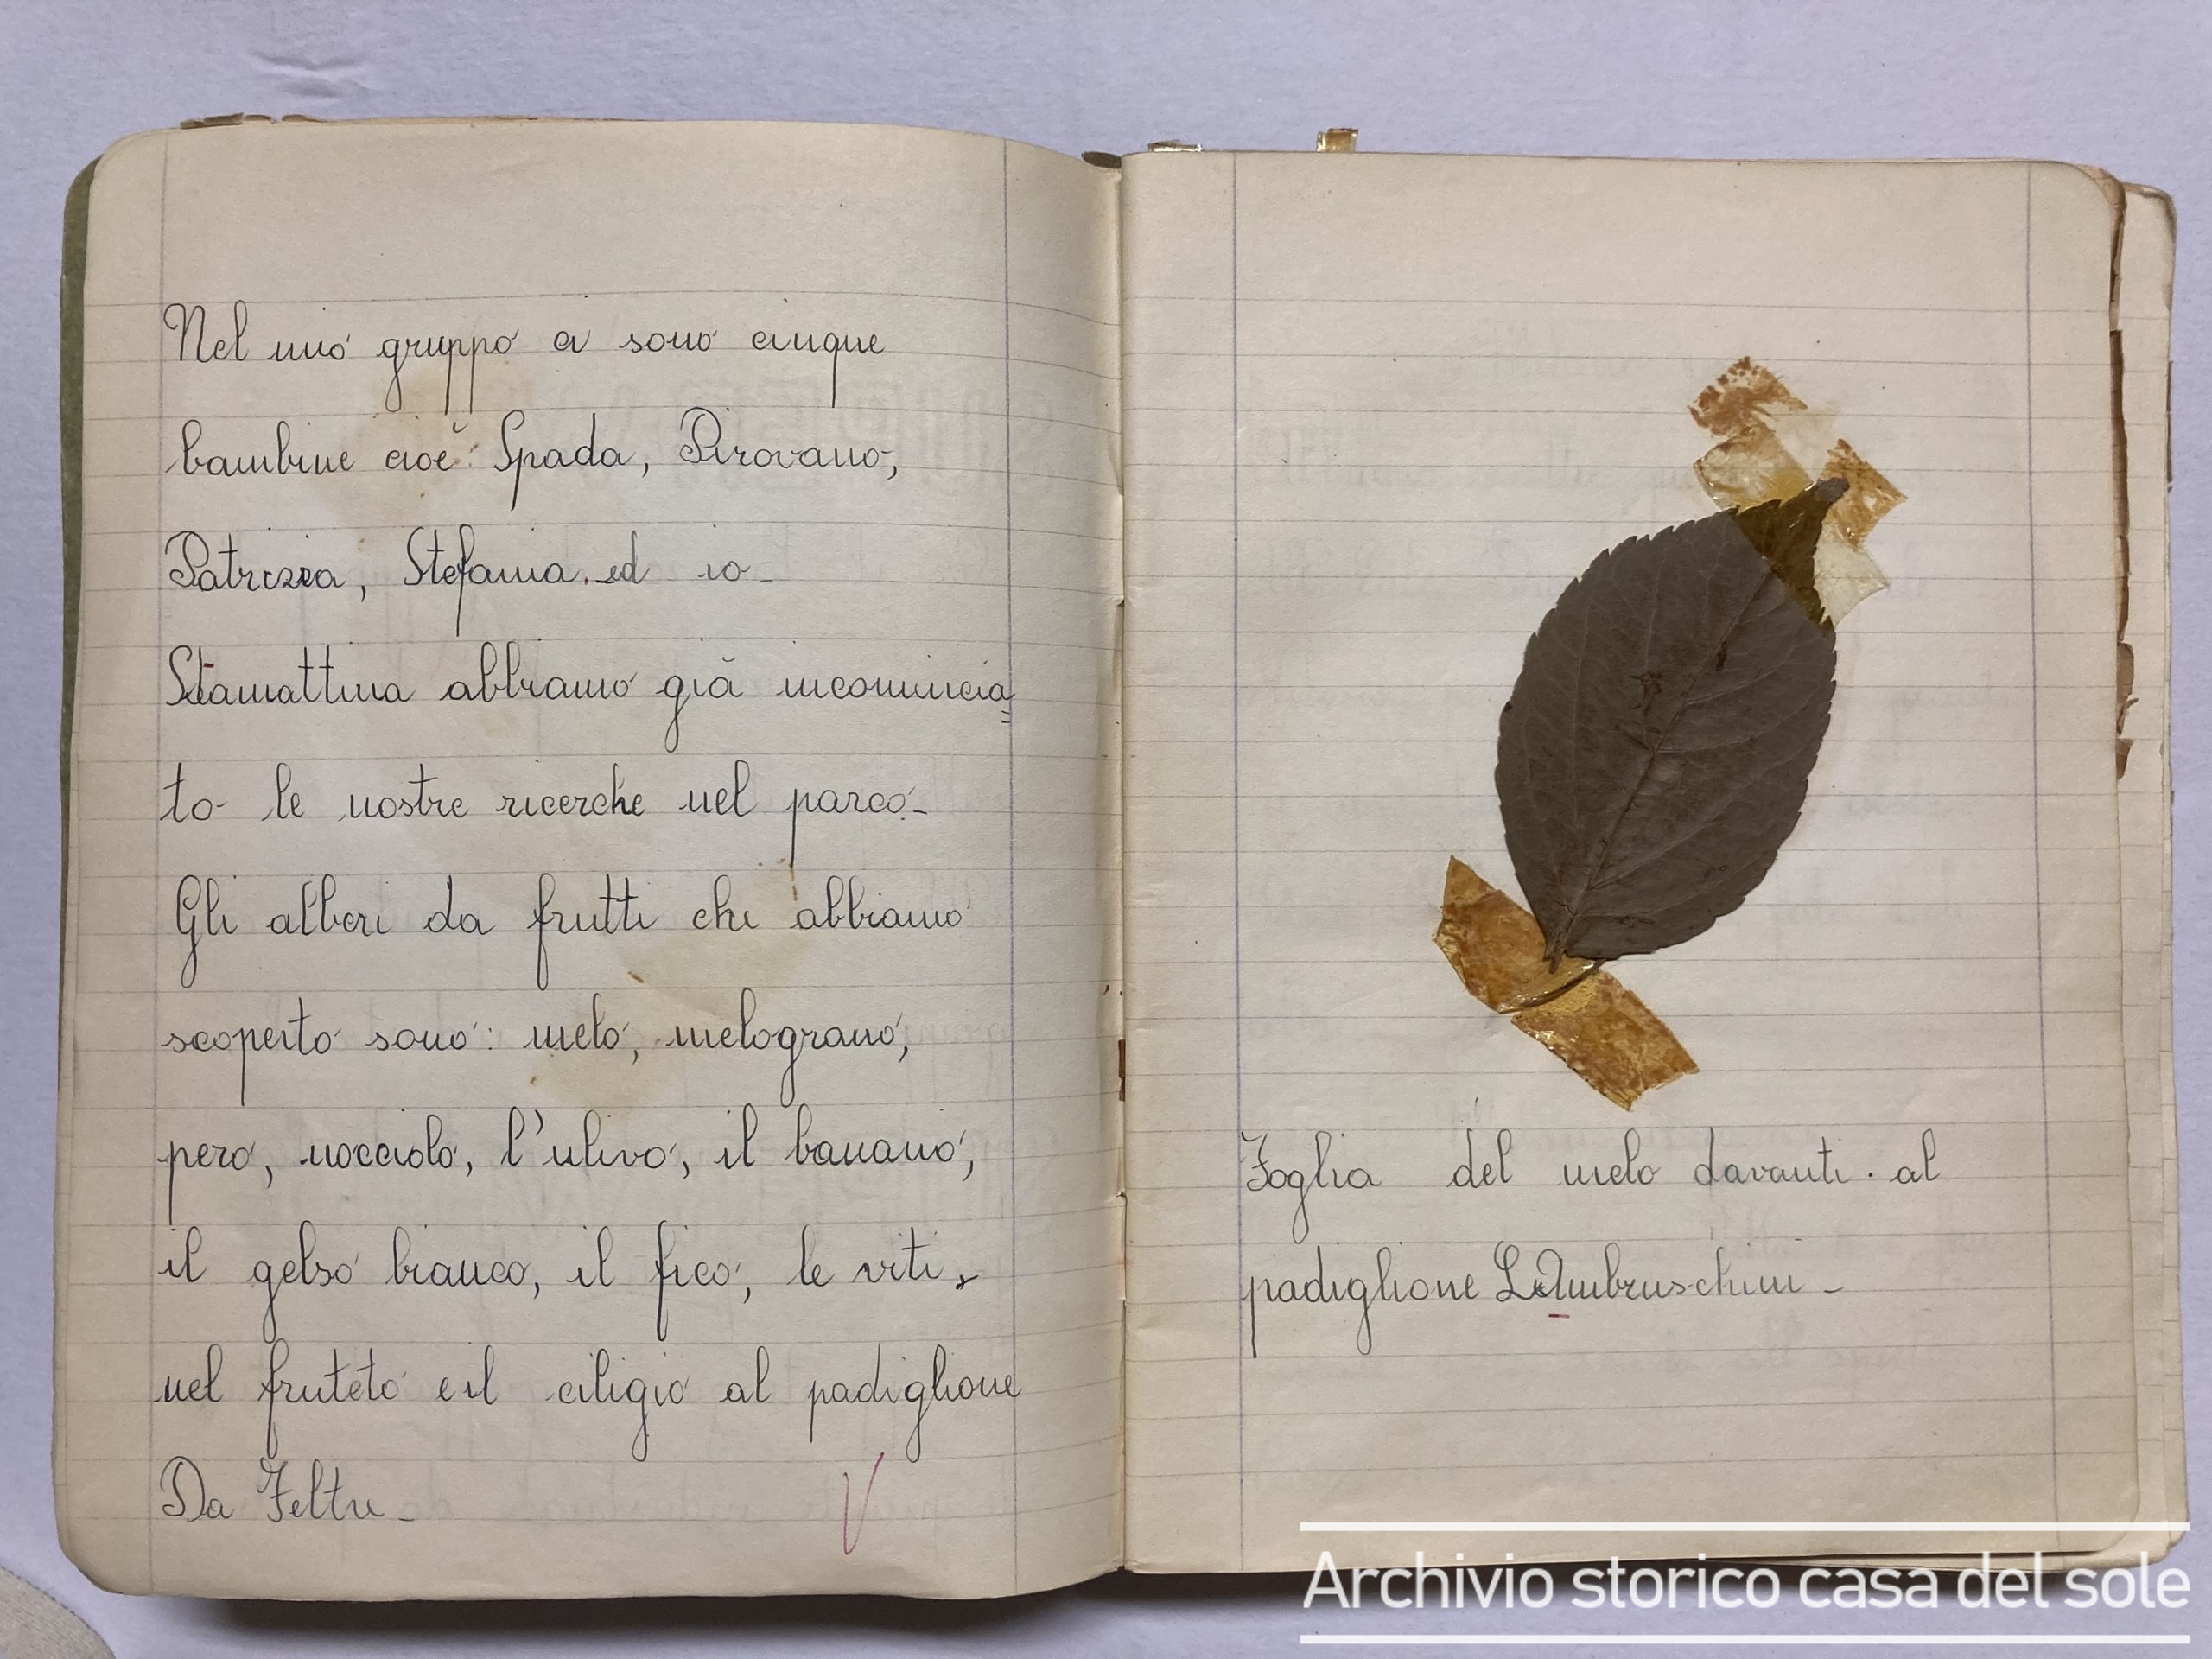 Nel mio gruppo ci sono cinque
bambine cioè: Spada, Pirovano,
Patrizia, Stefania. ed io-
Stamattina abbiamo già incomincia=
to le nostre ricerche nel parco.-
Gli alberi da frutti che abbiamo
scoperto sono: melo, melograno,
pero, nocciolo, l'ulivo, il banano,
il gelso bianco, il fico, le viti,
nel fruteto e il ciligio al padiglione
Da Feltre-
V
Foglia del melo davanti. al
padiglione LAmbruschini-
Archivio storico casa del sole